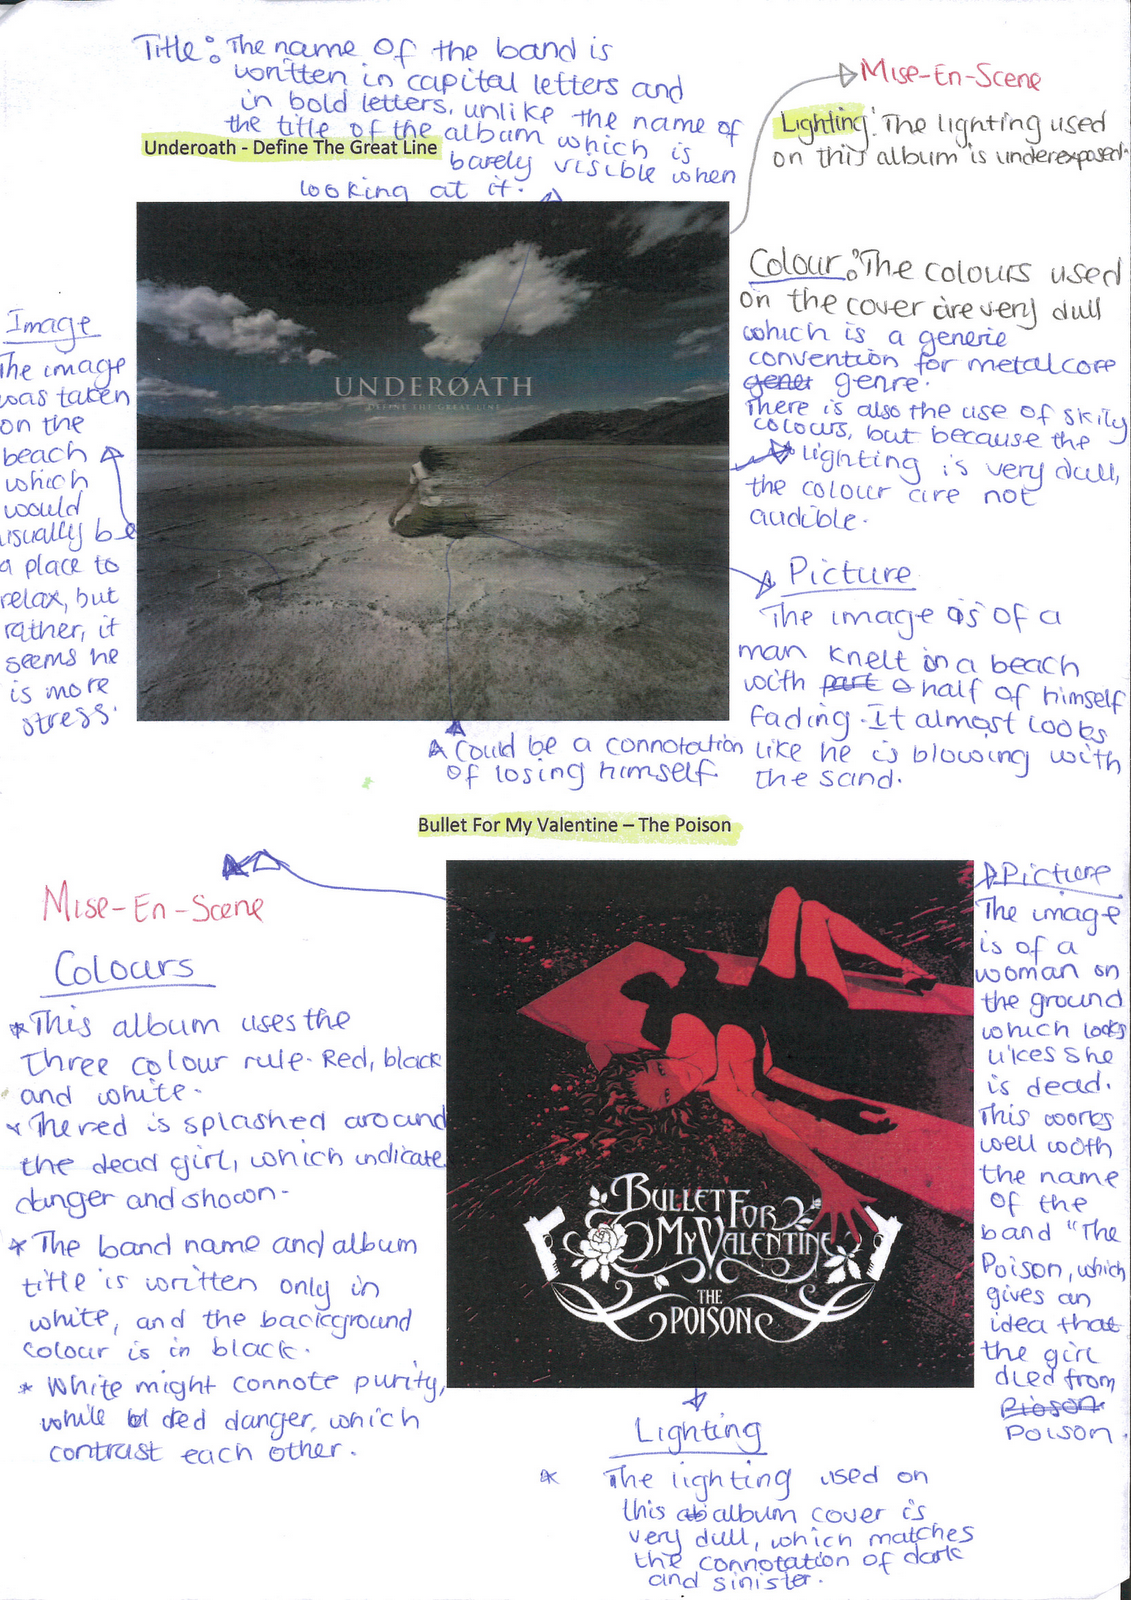 Title: The name of the band is
written in capital letters and
in bold letters, unlike the name of
the title of the album which is
barely visible when
looking at it.
Underoath - Define The Great Line
Mise-En-Scene
Lighting: The lighting used
on this album is underexposed.
Colour: The colours used
on the cover are very dull
which is a generic
convention for metalcore
gener genre.
There is also the use of skily
colours, but because the
lighting is very dull,
the colour are not
audible.
Image
The image
was taken
on the
beach
which
would
usually be
a place to
relax, but
rather, it
seems he
is more
stress.
UNDERØATH
DEFINE THE GREAT LINE
Picture
The image is of a
man knelt in a beach
with part a half of himself
fading. It almost looks
like he is blowing with
the sand.
Could be a connotation
of losing himself.
Bullet For My Valentine – The Poison
Mise-En-Scene
Colours
* This album uses the
three colour rule. Red, black
and white.
* The red is splashed around
the dead girl, which indicate
danger and shown.
* The band name and album
title is written only in
white, and the background
colour is in black.
* White might connote purity,
while red danger, which
contrast each other.
BULLET FOR
MY VALENTINE
THE
POISON
Picture
The image
is of a
woman on
the ground
which looks
likes she
is dead.
This works
well with
the name
of the
band "The
Poison, which
gives an
idea that
the girl
died from
Pioson
poison.
Lighting
* The lighting used on
this ab album cover is
very dull, which matches
the connotation of dark
and sinister.